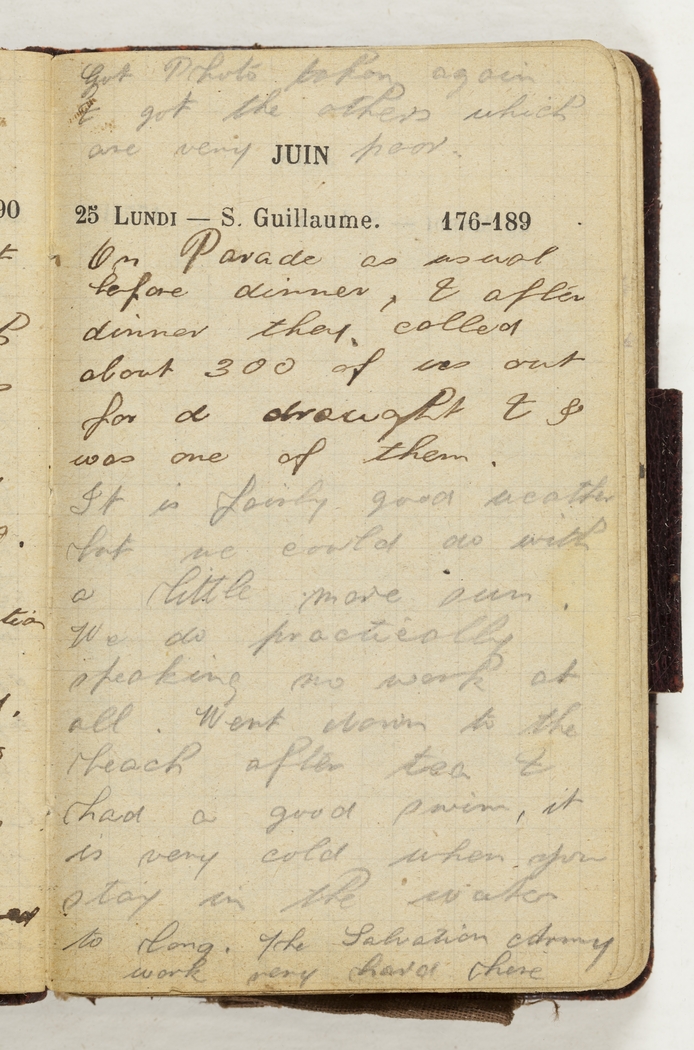 Got Photo taken again
& got the others which
are very poor.
JUIN
25 LUNDI — S. Guillaume. 176-189
On Parade as usual
before dinner, & after
dinner they called
about 300 of us out
for a draught & I
was one of them.
It is fairly good weather
but we could do with
a little more sun.
We do practically
speaking no work at
all. Went down to the
beach after tea &
had a good swim, it
is very cold when you
stay in the water
to long. The Salvation Army
work very hard here
90